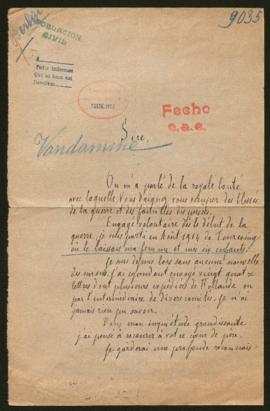 9035
POBLACIÓN
CIVIL
Fecho
e.a.e.
Vandamme
Sire,
On m'a parlé de la royale bonté
avec laquelle Vous daignez vous occuper des blessés
de la guerre et des familles des
Engagé volontaire dès le début de la
guerre, je suis parti en Août 1914 de Tourcoing
où je laissais ma femme et mes six enfants.
Je suis depuis lors sans aucune nouvelle
des miens. J'ai cependant envoyé vingt quatre
lettres dont plusieurs expédiées de Hollande ou
par l'intermédiaire de divers comités. Je n'ai
jamais rien pu savoir.
Dans mon inquiétude grandissante
j'ai pensé à recourir à votre cœur de père.
Je garderai une profonde reconnais-